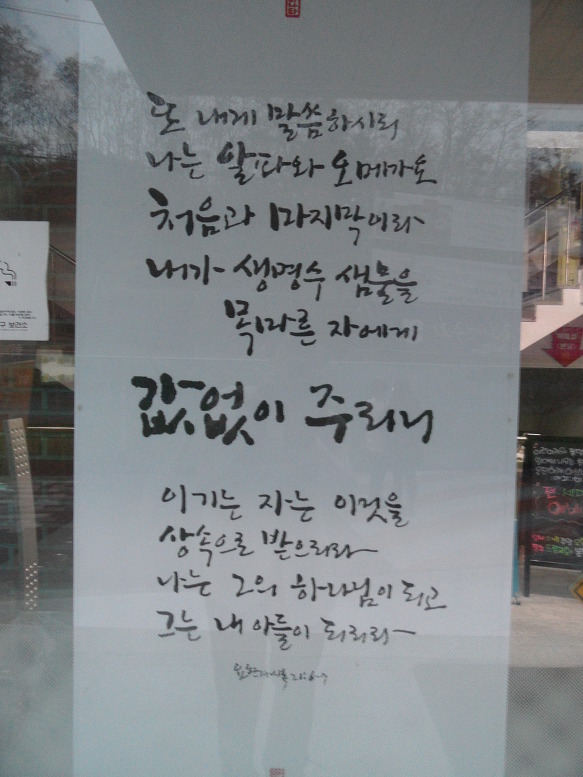 또 내게 말씀하시되
나는 알파와 오메가요
처음과 마지막이라
내가 생명수 샘물을
목마른 자에게
값없이 주리니
이기는 자는 이것을
상속으로 받으리라
나는 그의 하나님이 되고
그는 내 아들이 되리라
요한계시록 21:6-7
구 보건소